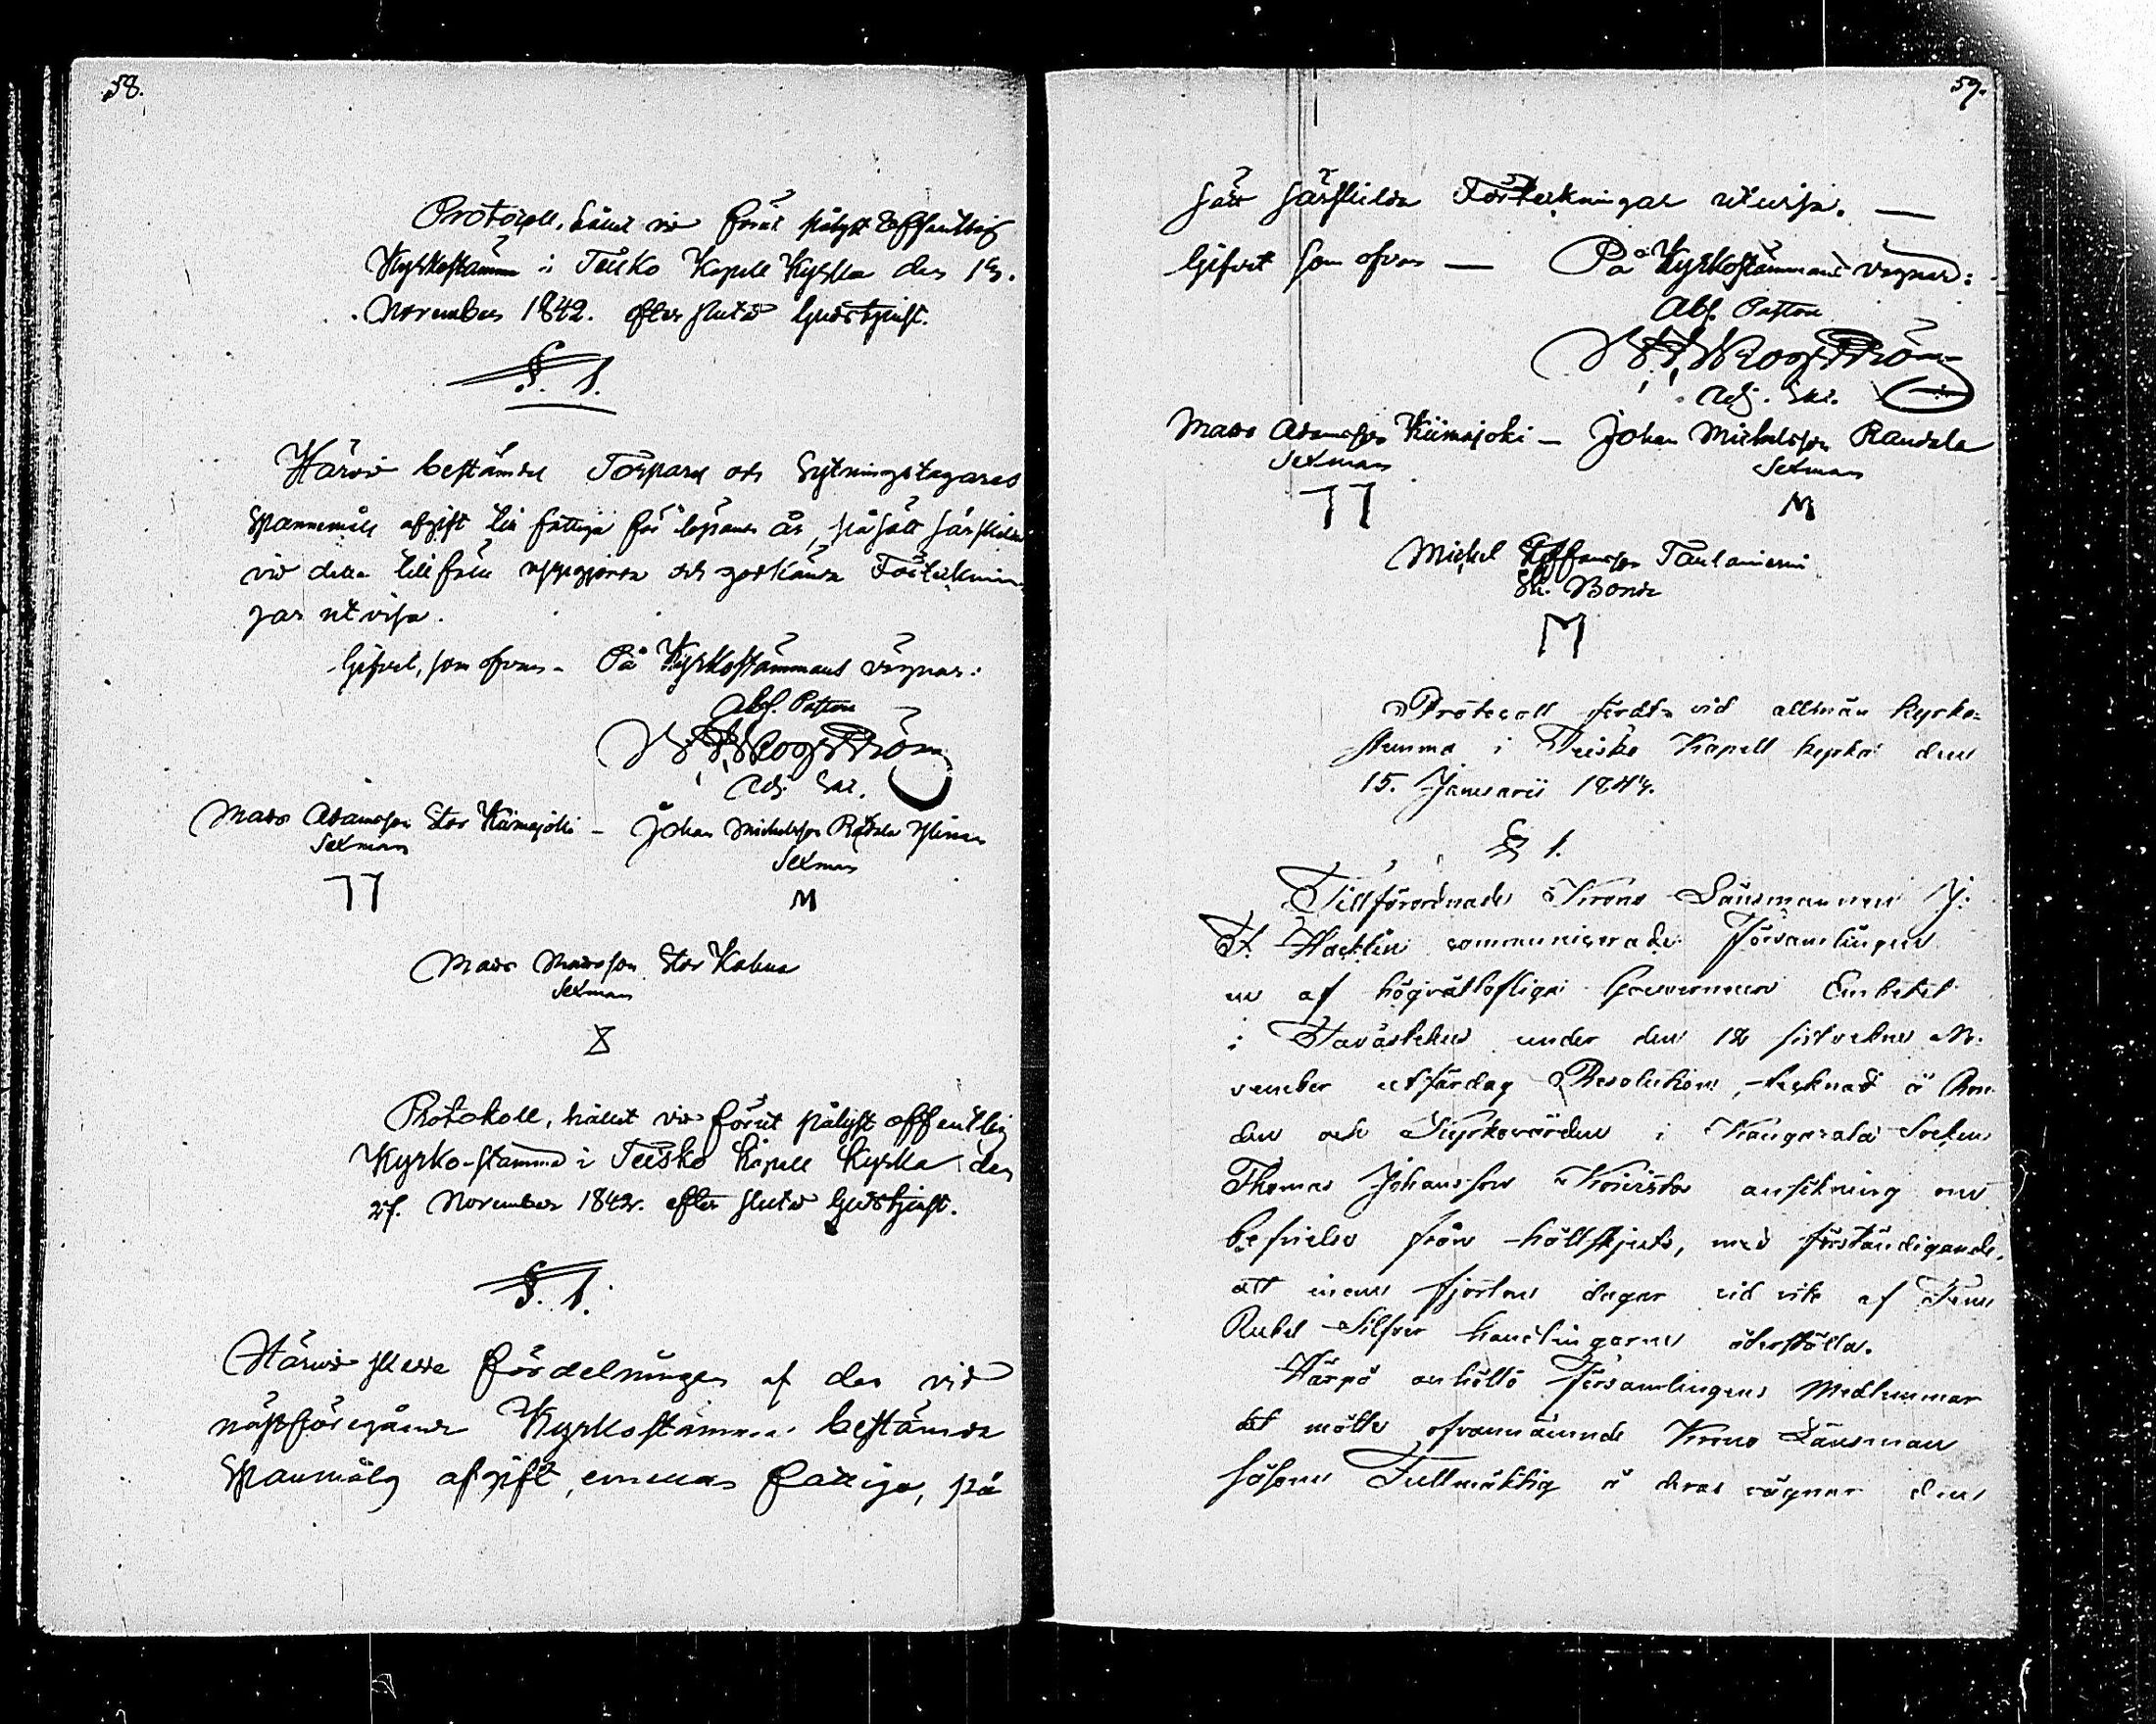 58.
Protocoll, hållit vid förut pålyst offentlig
Kyrkostämma i Teisko Kapell Kyrka den 13.
November 1842. efter slutad Gudstjenst.
§. 1.
Härvid bestämdes Torpares och Sytningstagares
Spannemåls afgift till fattiga för löpande år, på sätt särskilda
vid detta tillfälle uppgjorda och godkända Förteknin
gar utvisa.
Gifvet, som ofvan. På Kyrkostämmans vägnar:
Abs. Pastore
Skogström
Adj. Sac.
Mats Adamsson Stor Kiimajoki – Johan Michelsson
Sexman Sexman
M
Mats Matsson Stor Kahna
Sexman
Protokoll, hållet vid förut pålyst offentlig
Kyrko-stämma i Teisko Kapell Kyrka den
27. November 1842. efter slutad Gudstjenst.
§. 1.
Härvid skedde fördelningen af den vid
nästföregående Kyrkostämma bestämda
Spanmåls afgift, emellan fattiga, på
59.
sätt särskilda Förteckningar utvisa. —
Gifvet som ofvan — På Kyrkostämmans vägnar:
Abs. Pastore
Skogström
Adj. Sac.
Mats Adamsson Kiimajoki – Johan Michelsson Raudala
Sexman Sexman
M
Michel Staffansson Taulaniemi
Sk. Bonde
M
Protocoll fördt vid allmän Kyrko-
stemma i Teisko Kapell kyrka den
15. Januarii 1844.
§ 1.
Tillförordnade Krono Länsmannen J.
F. Hacklin communicerade Församlingen
en af högvällofliga Gouverneurs Embetet
i Tavastehus under den 12 sistvekne No-
vember utfärdag Resolution, tecknad å Bon-
den och Kyrkovärden i Kangasala Socken
Thomas Johansson ansökning om
befrielse från hållskjuts, med förständigande,
att innom fjorton dagar vid vite af Fem
Rubel Silfver handlingarne återställa.
Härpå anhöllo Församlingens Medlemmar
det måtte ofvannämnde Krono Länsman
såsom Fullmäktig å deras vägnar den